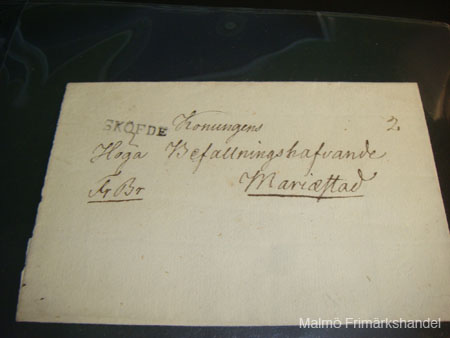 SKÖFDE Konungens 2.
Höga Befallningshafvande
Fr Br Mariæstad
Malmö Frimärkshandel